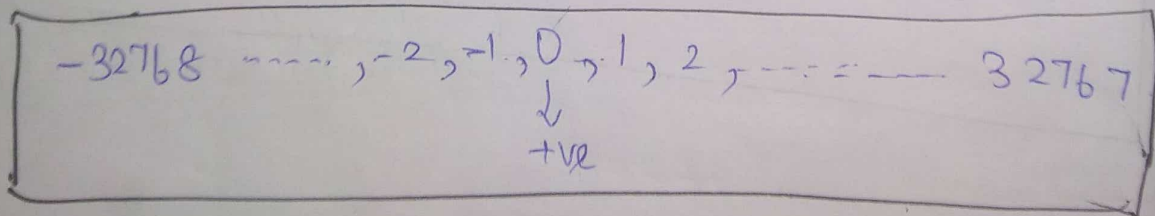 -32768 ------, -2, -1, 0, 1, 2, ------- 32767
↓
+ve